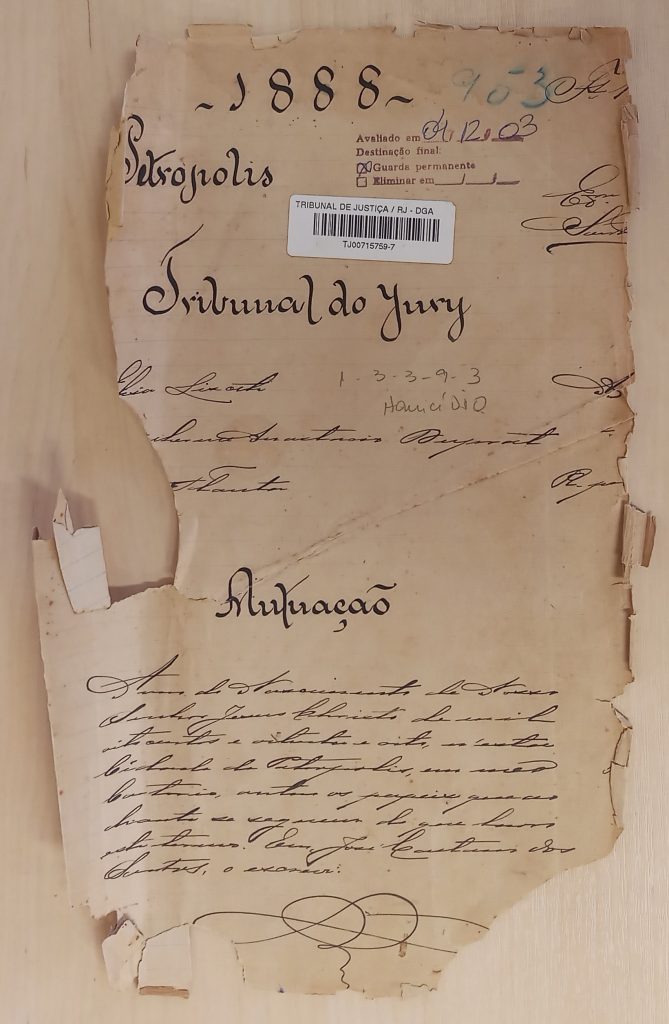 1888
953
Avaliado em 04 12 03
Destinação final:
Guarda permanente
Eliminar em
Petropolis
TRIBUNAL DE JUSTIÇA / RJ - DGA
TJ00715759-7
Tribunal do Jury
1-3-3-9-3
Homicídio
Anastacio
Autuação
Anno do Nascimento de Nosso
Senhor Jesus Christo de mil
oitocentos e oitenta e oito, n'esta
Cidade de Petropolis, em meu
Cartorio, autuo os papeis que ao
deante se seguem do que lavro
este termo. Eu, José Caetano dos
Santos, o escrevi.